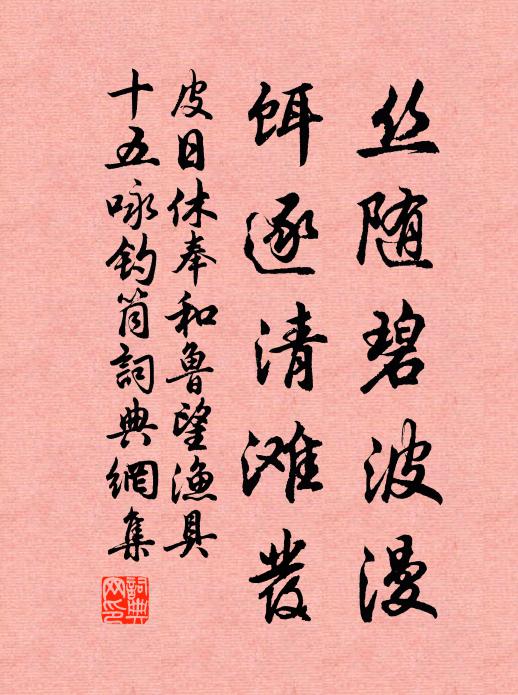 丝随碧波漫
饵逐清滩發
皮日休奉和鲁望渔具
十五咏钓筒詞典網集
詞典網印